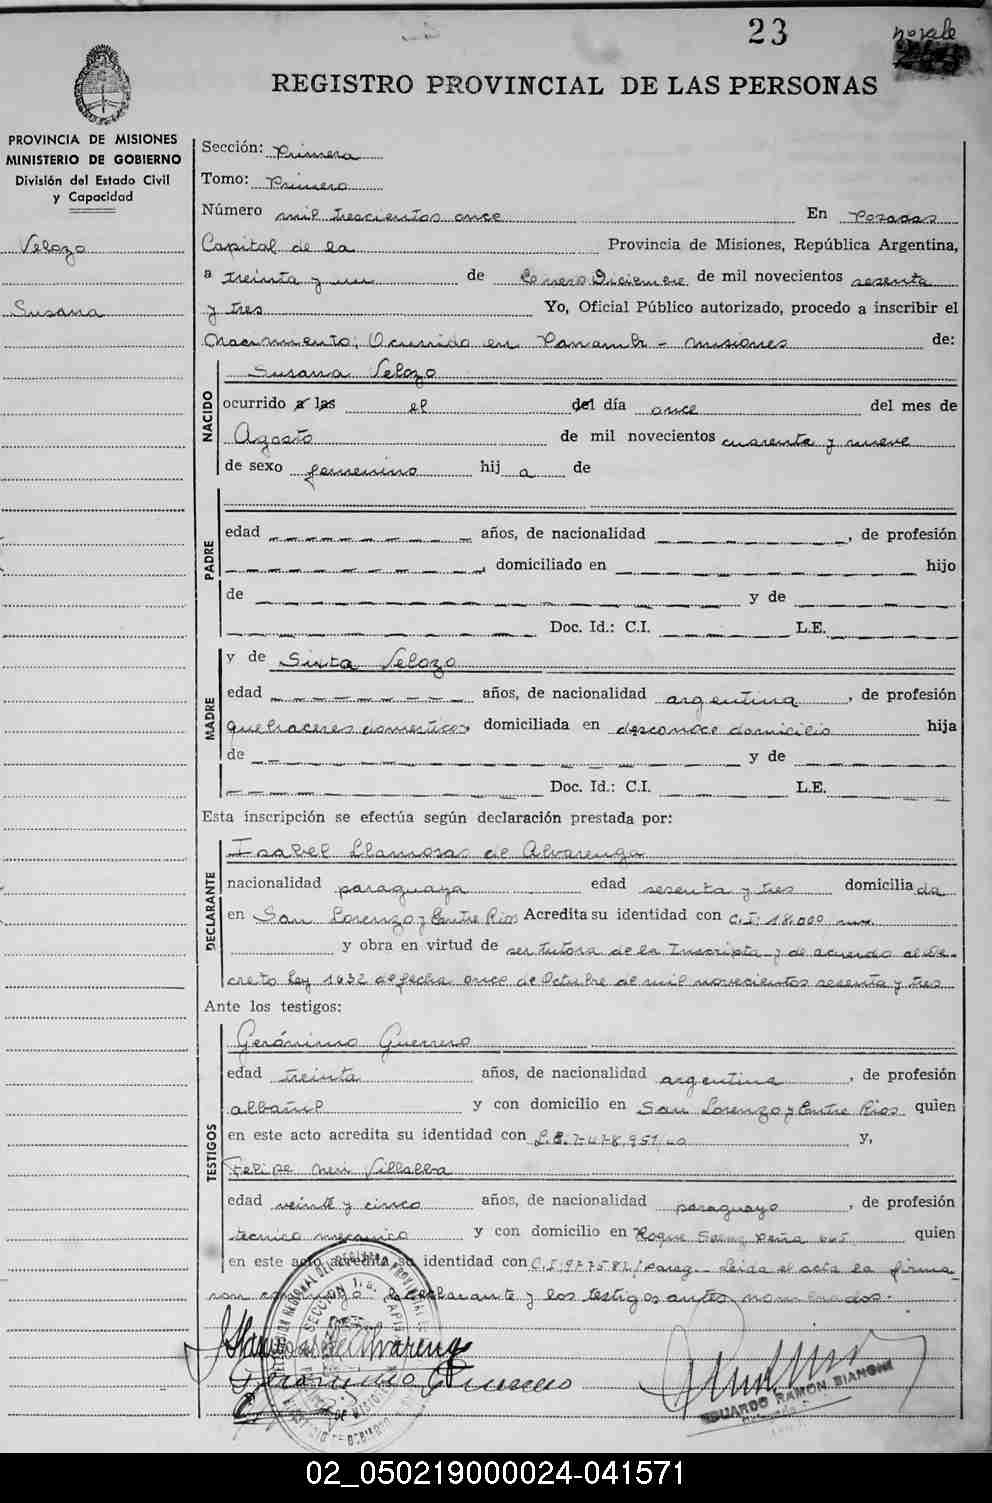 23
REGISTRO PROVINCIAL DE LAS PERSONAS
PROVINCIA DE MISIONES
MINISTERIO DE GOBIERNO
División del Estado Civil
y Capacidad
Velozo
Susana
Sección: Primera
Tomo: Primero
Número mil trescientos once En Posadas
Capital de la Provincia de Misiones, República Argentina,
a treinta y un de Diciembre de mil novecientos sesenta
y tres Yo, Oficial Público autorizado, procedo a inscribir el
Nacimiento; Ocurrido en Panambí - Misiones de:
NACIDO
Susana Velozo
ocurrido a las el del día once del mes de
Agosto de mil novecientos cuarenta y nueve
de sexo femenino hij a de
PADRE
edad años, de nacionalidad , de profesión
, domiciliado en hijo
de y de
Doc. Id.: C.I. L.E.
MADRE
y de Sixta Velozo
edad años, de nacionalidad argentina , de profesión
quehaceres domesticos, domiciliada en desconoce domicilio hija
de y de
Doc. Id.: C.I. L.E.
Esta inscripción se efectúa según declaración prestada por:
DECLARANTE
Isabel Llamosas de Alvarenga
nacionalidad paraguaya edad sesenta y tres domicilia da
en San Lorenzo y Entre Rios Acredita su identidad con C.I. 18.000
y obra en virtud de ser tutora de la Inscripta y de acuerdo al De-
creto Ley 1632 de fecha once de Octubre de mil novecientos sesenta y tres
Ante los testigos:
TESTIGOS
Gerónimo Guerrero
edad treinta años, de nacionalidad argentina , de profesión
albañil y con domicilio en San Lorenzo y Entre Rios quien
en este acto acredita su identidad con y,
Felipe Neri Villalba
edad veinte y cinco años, de nacionalidad paraguayo , de profesión
tecnico mecanico y con domicilio en Roque Saenz Peña 665 quien
en este acto acredita su identidad con C.I. Leida el acta la firma-
ron conmigo la declarante y los testigos antes nombrados.
Llamosas de Alvarenga
Gerónimo Guerrero
EDUARDO RAMON BIANCHI
02_050219000024-041571